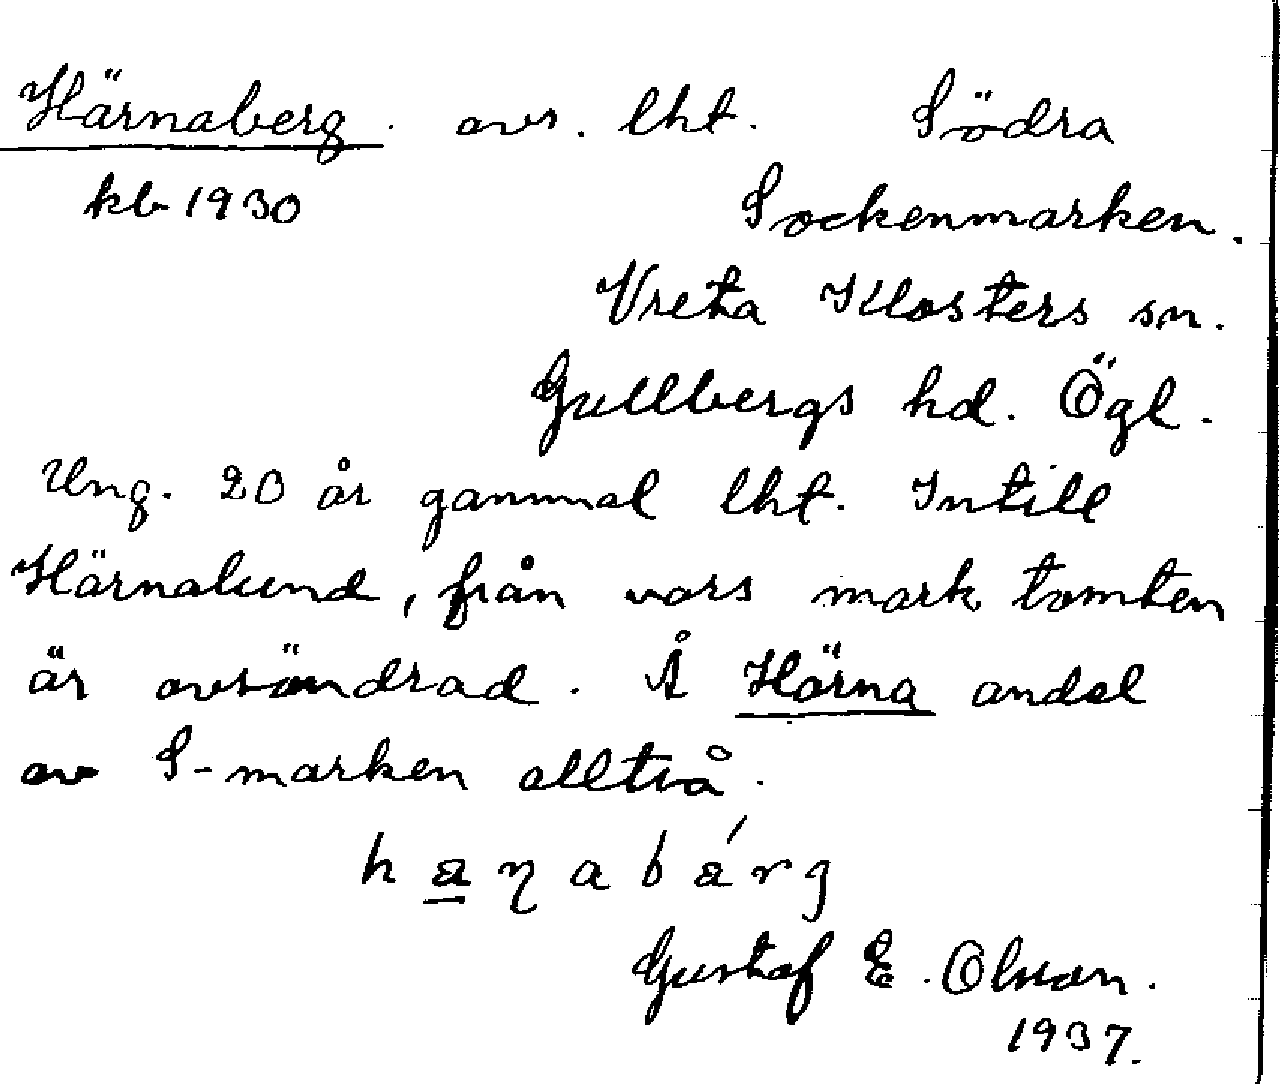 Härnaberg. avs. lht. Södra
kb 1930 Sockenmarken.
Vreta Klosters sn.
Gullbergs hd. Ögl.
Ung. 20 år gammal lht. Intill
Härnalund, från vars mark tomten
är avsöndrad. Å Härna andel
av S-marken alltså.
Gustaf E. Olsson.
1937.